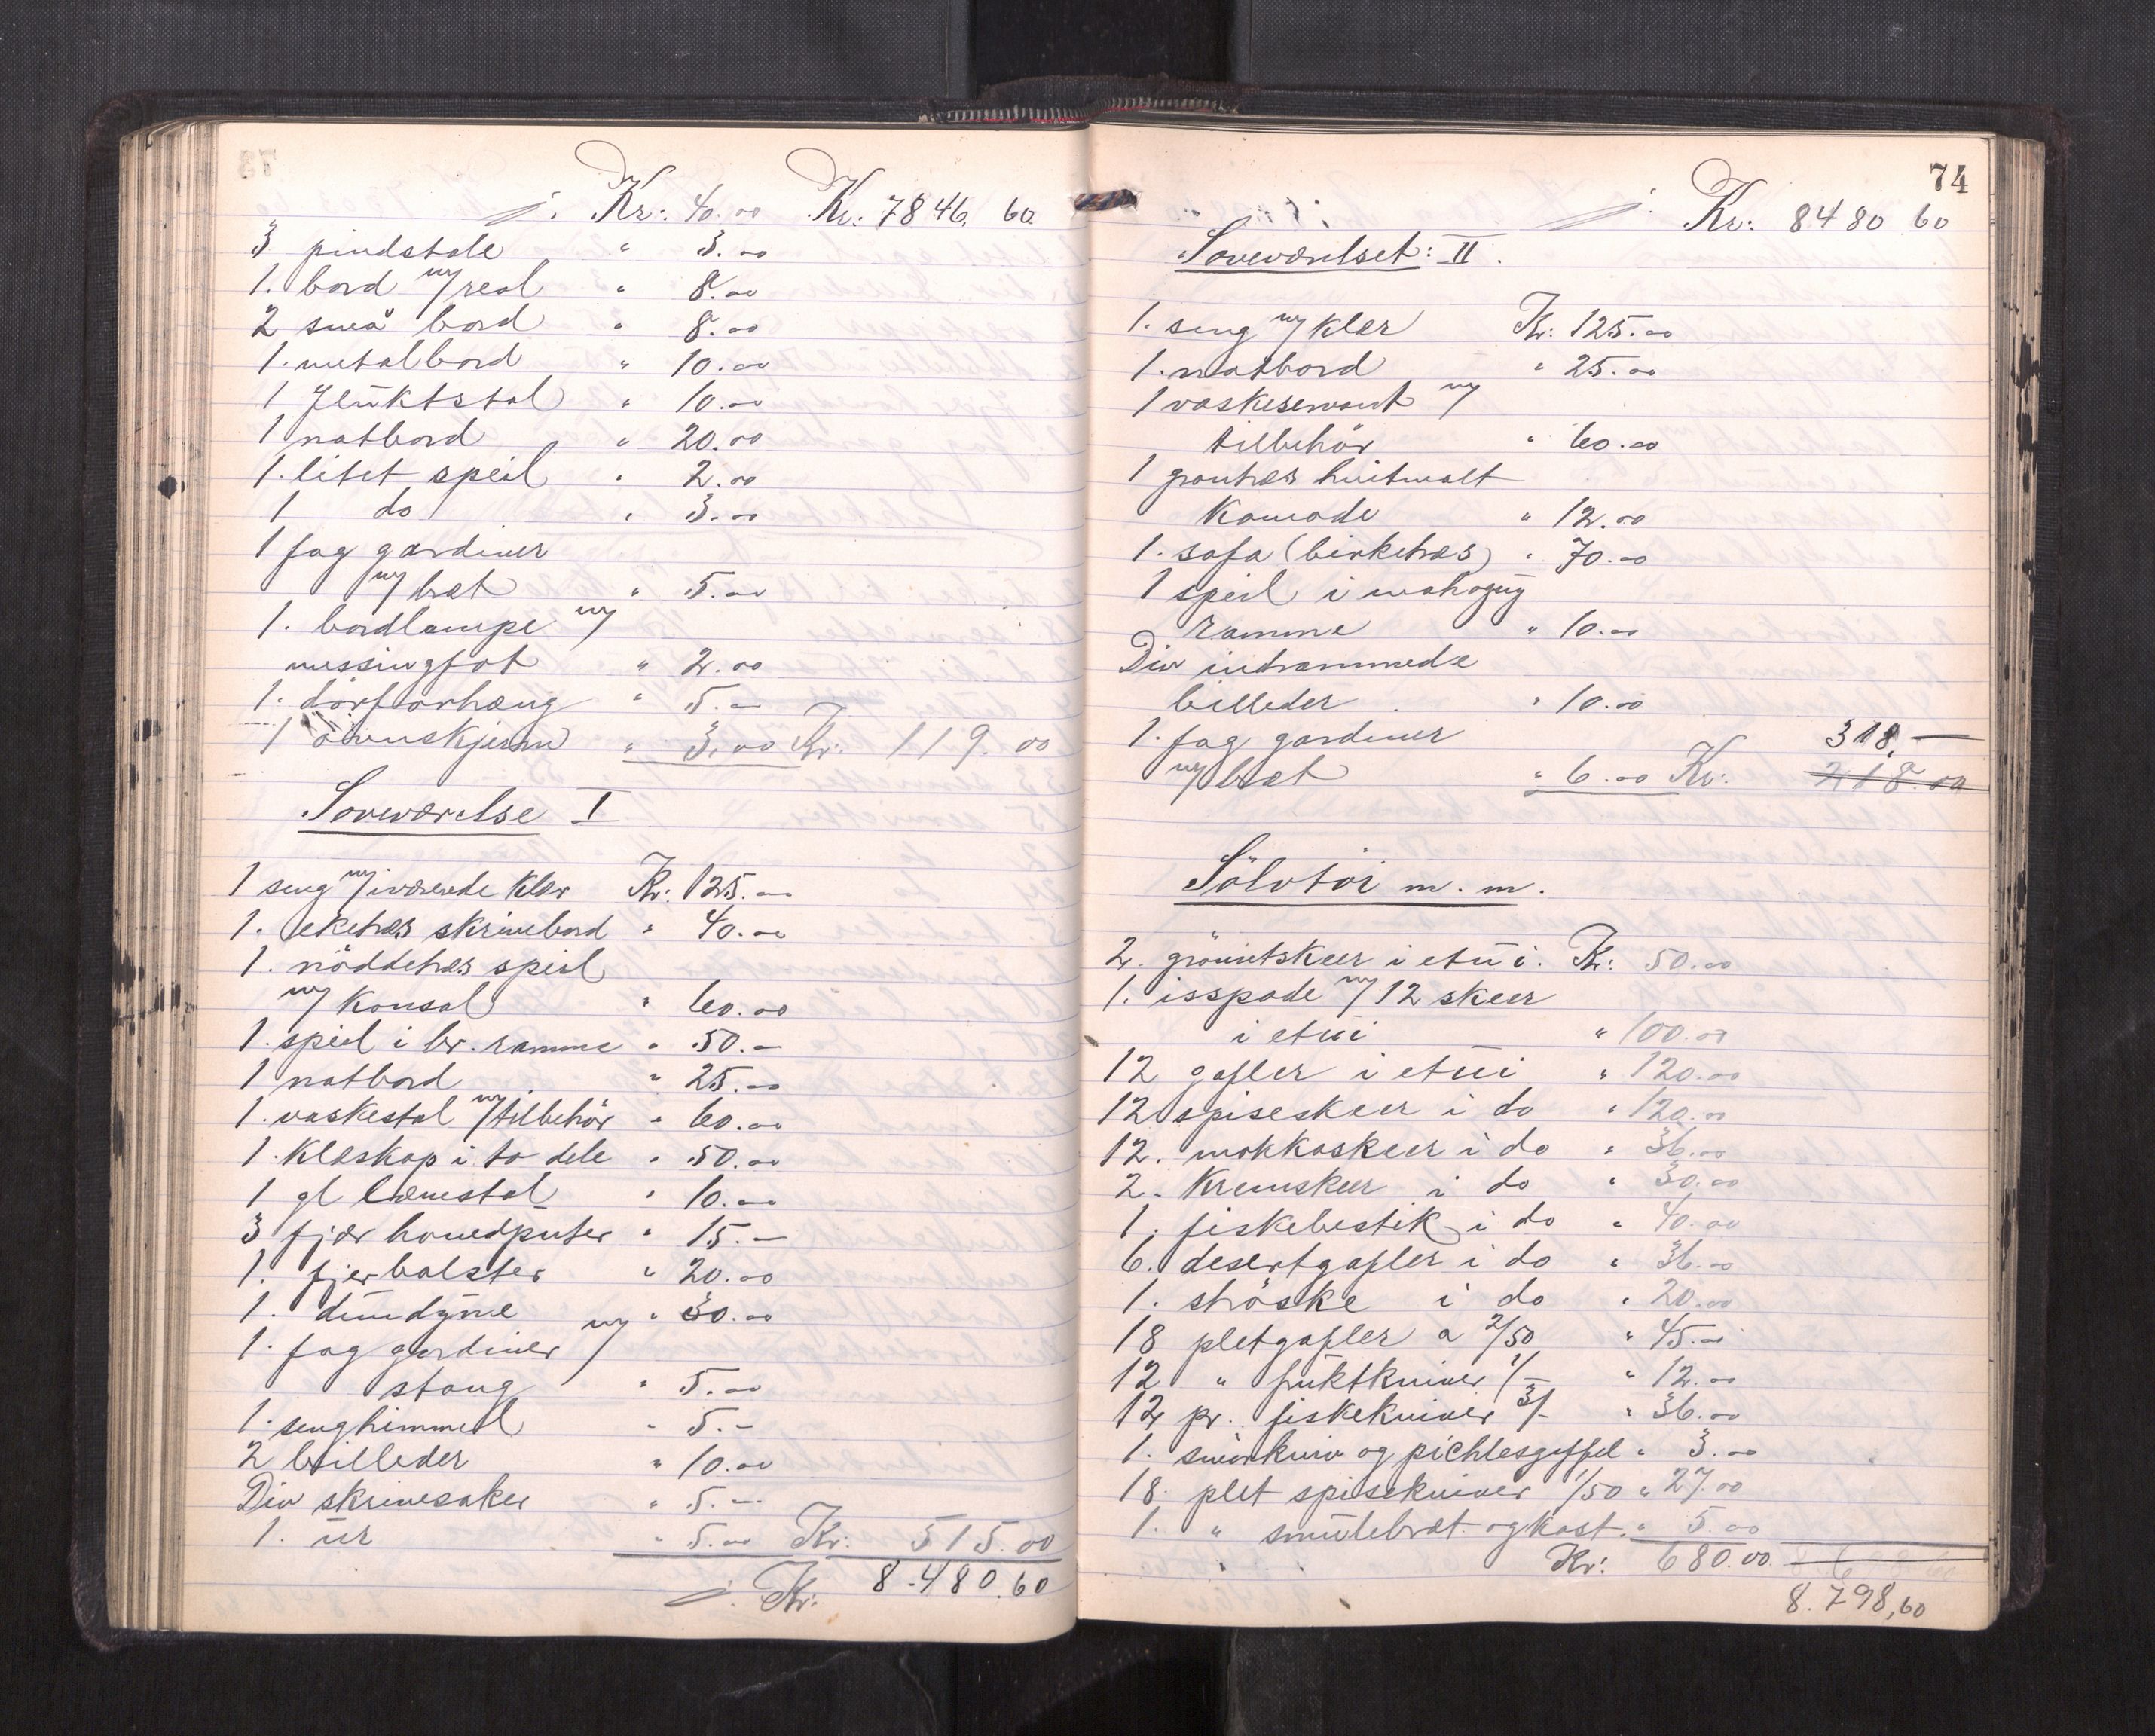 j. Kr: 40.00 Kr. 7846. 60.
3 pindstole " 3.00
1. bord m/ reol " 8.00
2 små bord " 8.00
1. metalbord " 10.00
1 flüktstol " 10.00
1 natbord " 20.00
1. litet speil " 2.00
1 do " 3.00
1 fag gardiner
m/ bræt " 5.00
1. bordlampe m/
messingfot " 2.00
1. dörforhæng " 5.—
1 ovnsskjerm " 3.00 Kr. 119.00
Soveværelse I
1 seng m/ iværende klær Kr: 125.—
1. eketræs skrivebord " 40.00
1. nöddetræs speil
m/ konsol " 60.00
1. speil i br. ramme " 50.—
1 natbord " 25.00
1. vaskestol m/ tilbehör " 60.00
1. klæskap i to dele " 50.00
1 gl lænestol " 10.00
3 fjær hovedputer " 15.—
1. fjerbolster " 20.00
1. dundyne " 30.00
1. fag gardiner m/
stang " 5.00
1. senghimmel " 5.—
2 billeder " 10.00
Div skrivesaker " 5.—
1. ür " 5.00 Kr: 515.00
j. Kr. 8.480.60
74
j. Kr: 8480 60
Soveværelset: II.
1. seng m/ klær Kr: 125.00
1. natbord " 25.00
1 vaskeservant m/
tilbehör " 60.00
1 grantræs hvitmalt
Komode " 12.00
1. sofa (birketræs) " 70.00
1 speil i mahogny
ramme " 10.00
Div indrammede
billeder " 10.00
1. fag gardiner 318.—
m/ bræt " 6.00 Kr: 218.00
Sölvtöi m. m.
2. gröintskeer i etüi. Kr: 50.00
1. isspade m/ 12 skeer
i etüi " 100.00
12 gafler i etüi " 120.00
12 spiseskeer i do " 120.00
12. mokkaskeer i do " 36.00
2. Kremskeer i do " 30.00
1. fiskebestik i do " 40.00
6. desertgafler i do " 36.00
1. ströske i do " 20.00
18 pletgafler a 2/50 " 45.00
12 " früktkniver 1/— " 12.00
12 pr. fiskekniver 3/— " 36.00
1. smörkniv og pichlesgaffel " 3.00
18 plet spisekniver 1/50 " 27.00
1. " smülebræt og kost. " 5.00
Kr: 680.00
8.798,60